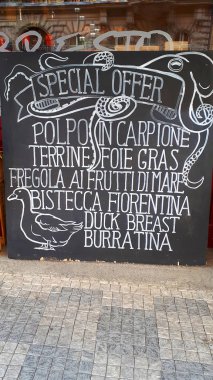 SPECIAL OFFER
POLPO IN CARPIONE
TERRINE FOIE GRAS
FREGOLA AI FRUTTI DI MARE
BISTECCA FIORENTINA
DUCK BREAST
BURRATINA